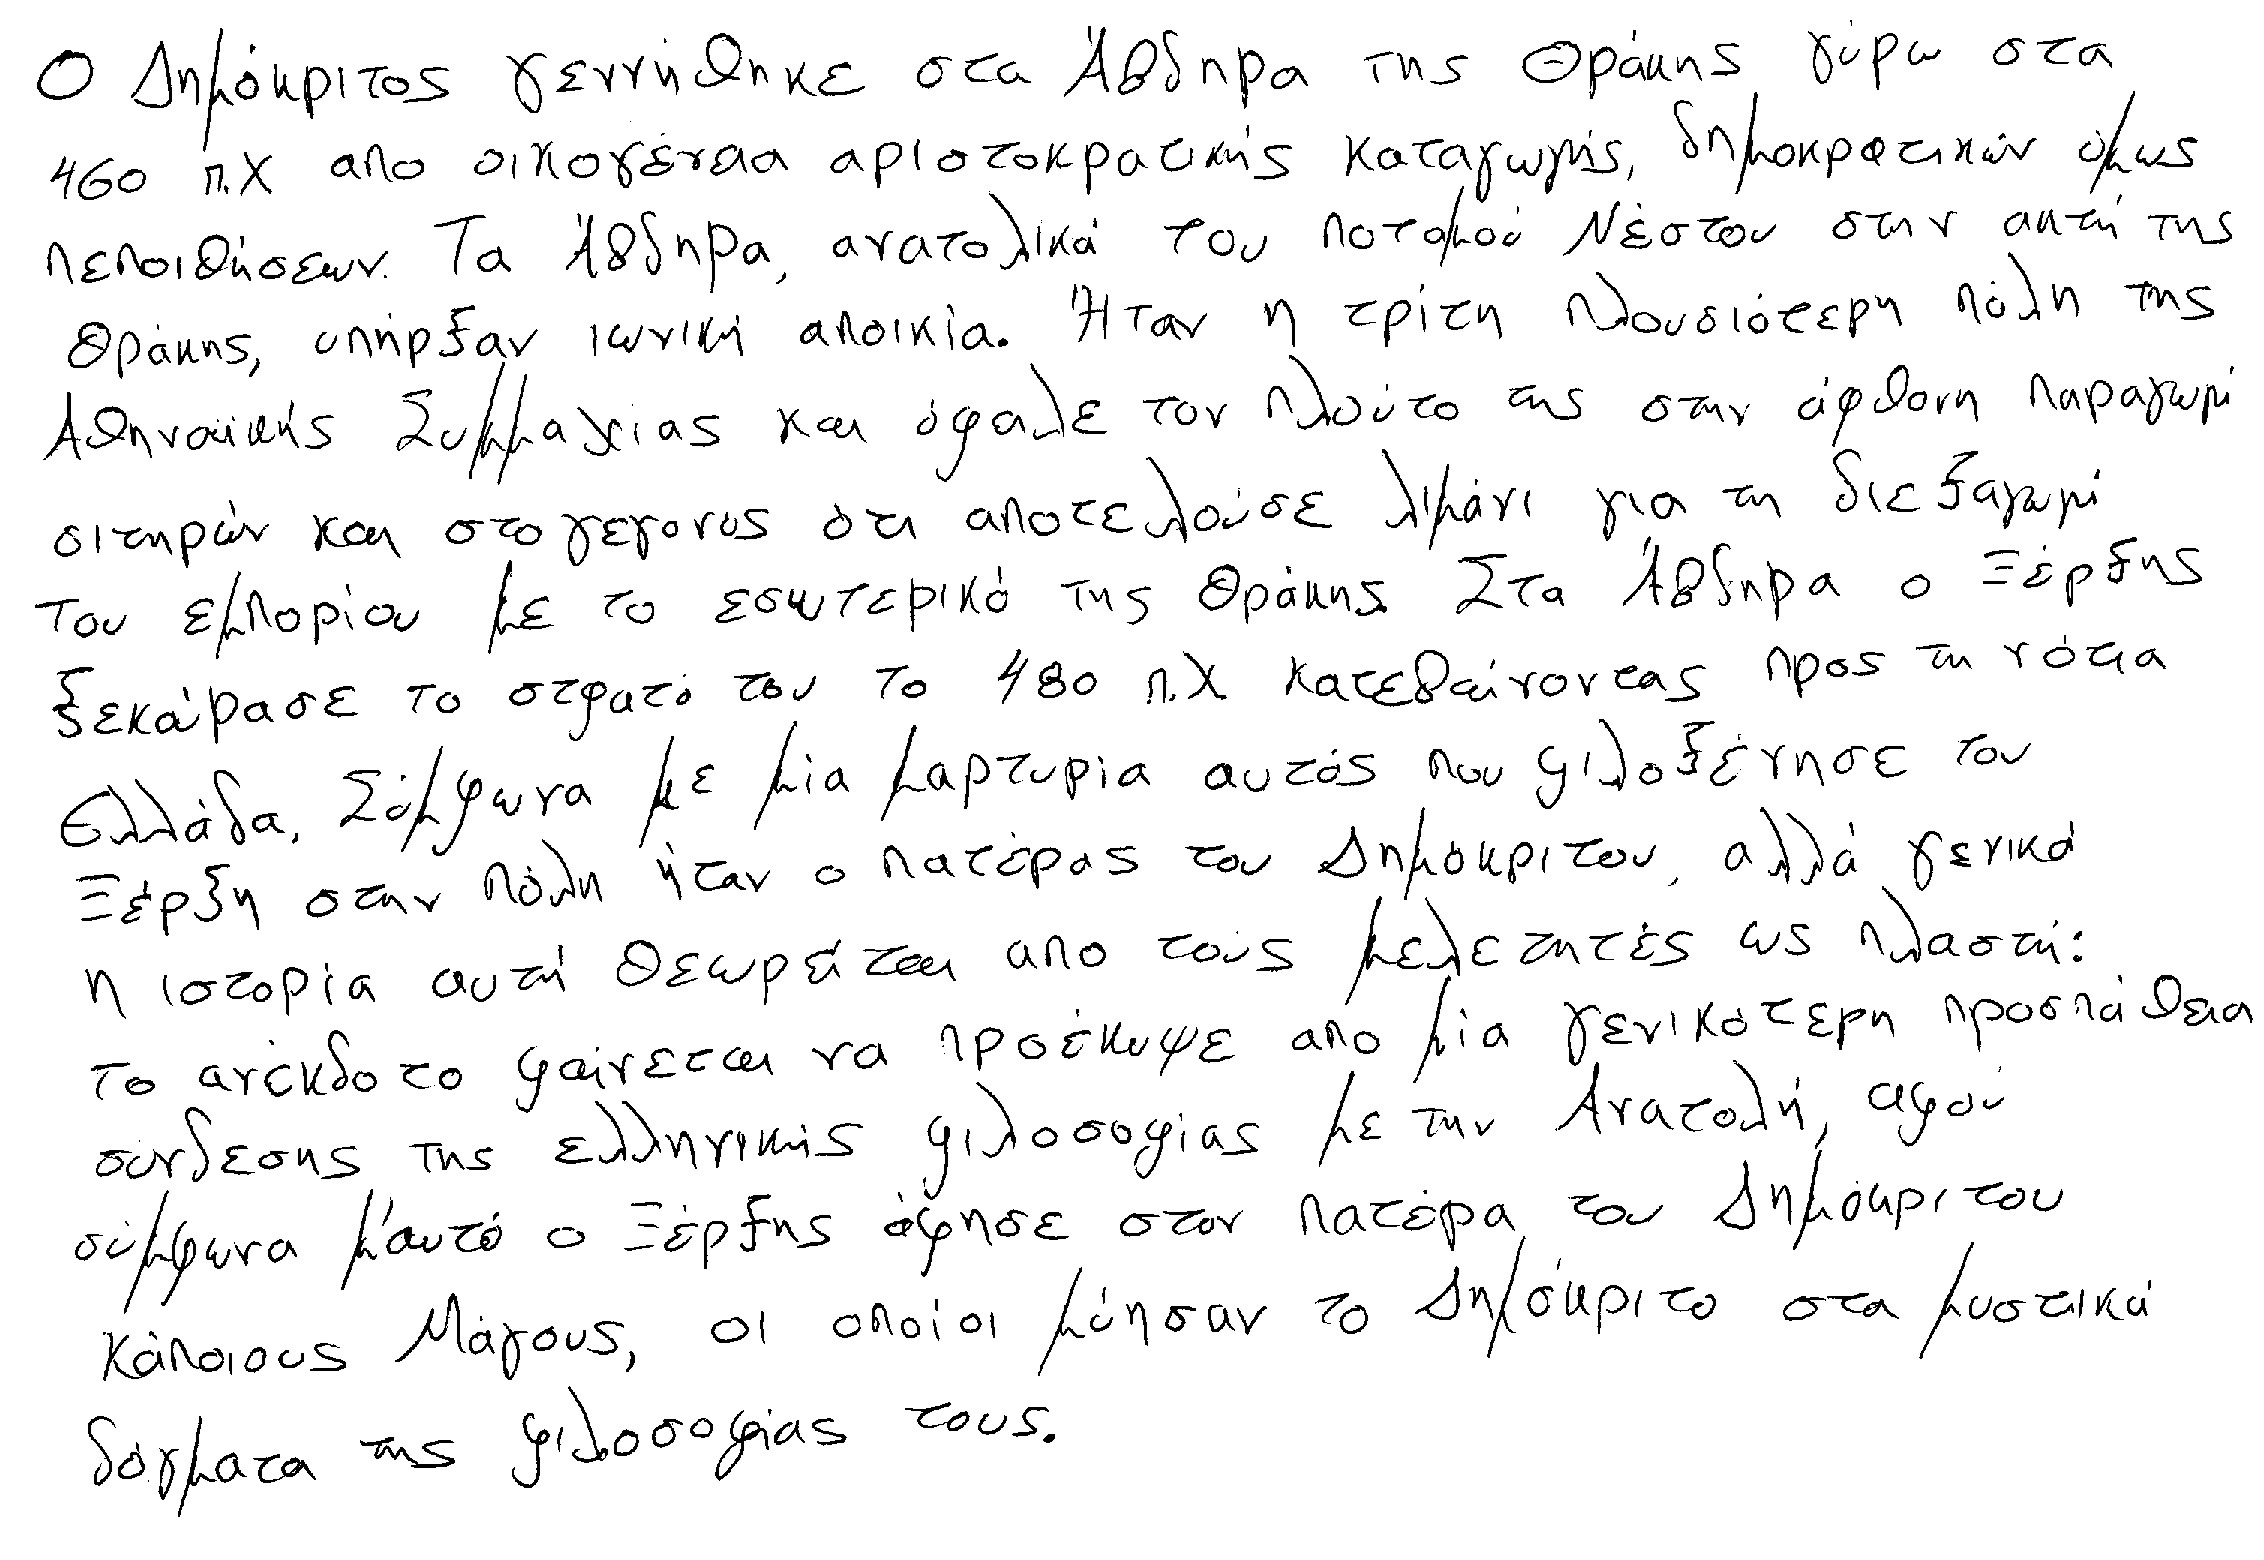 Ο Δημόκριτος γεννήθηκε στα Άβδηρα της Θράκης γύρω στα
460 π.Χ απο οικογένεια αριστοκρατικής καταγωγής, δημοκρατικών όμως
πεποιθήσεων. Τα Άβδηρα, ανατολικά του ποταμού Νέστου στην ακτή της
Θράκης, υπήρξαν ιωνική αποικία. Ήταν η τρίτη πλουσιότερη πόλη της
Αθηναϊκής Συμμαχίας και όφειλε τον πλούτο της στην άφθονη παραγωγή
σιτηρών και στο γεγονός ότι αποτελούσε λιμάνι για τη διεξαγωγή
του εμπορίου με το εσωτερικό της Θράκης. Στα Άβδηρα ο Ξέρξης
ξεκούρασε το στρατό του το 480 π.Χ κατεβαίνοντας προς τη νότια
Ελλάδα. Σύμφωνα με μία μαρτυρία αυτός που φιλοξένησε τον
Ξέρξη στην πόλη ήταν ο πατέρας του Δημόκριτου, αλλά γενικά
η ιστορία αυτή θεωρείται απο τους μελετητές ως πλαστή:
το ανέκδοτο φαίνεται να προέκυψε απο μία γενικότερη προσπάθεια
σύνδεσης της ελληνικής φιλοσοφίας με την Ανατολή, αφού
σύμφωνα μ'αυτό ο Ξέρξης άφησε στον πατέρα του Δημόκριτου
κάποιους Μάγους, οι οποίοι μύησαν το Δημόκριτο στα μυστικά
δόγματα της φιλοσοφίας τους.